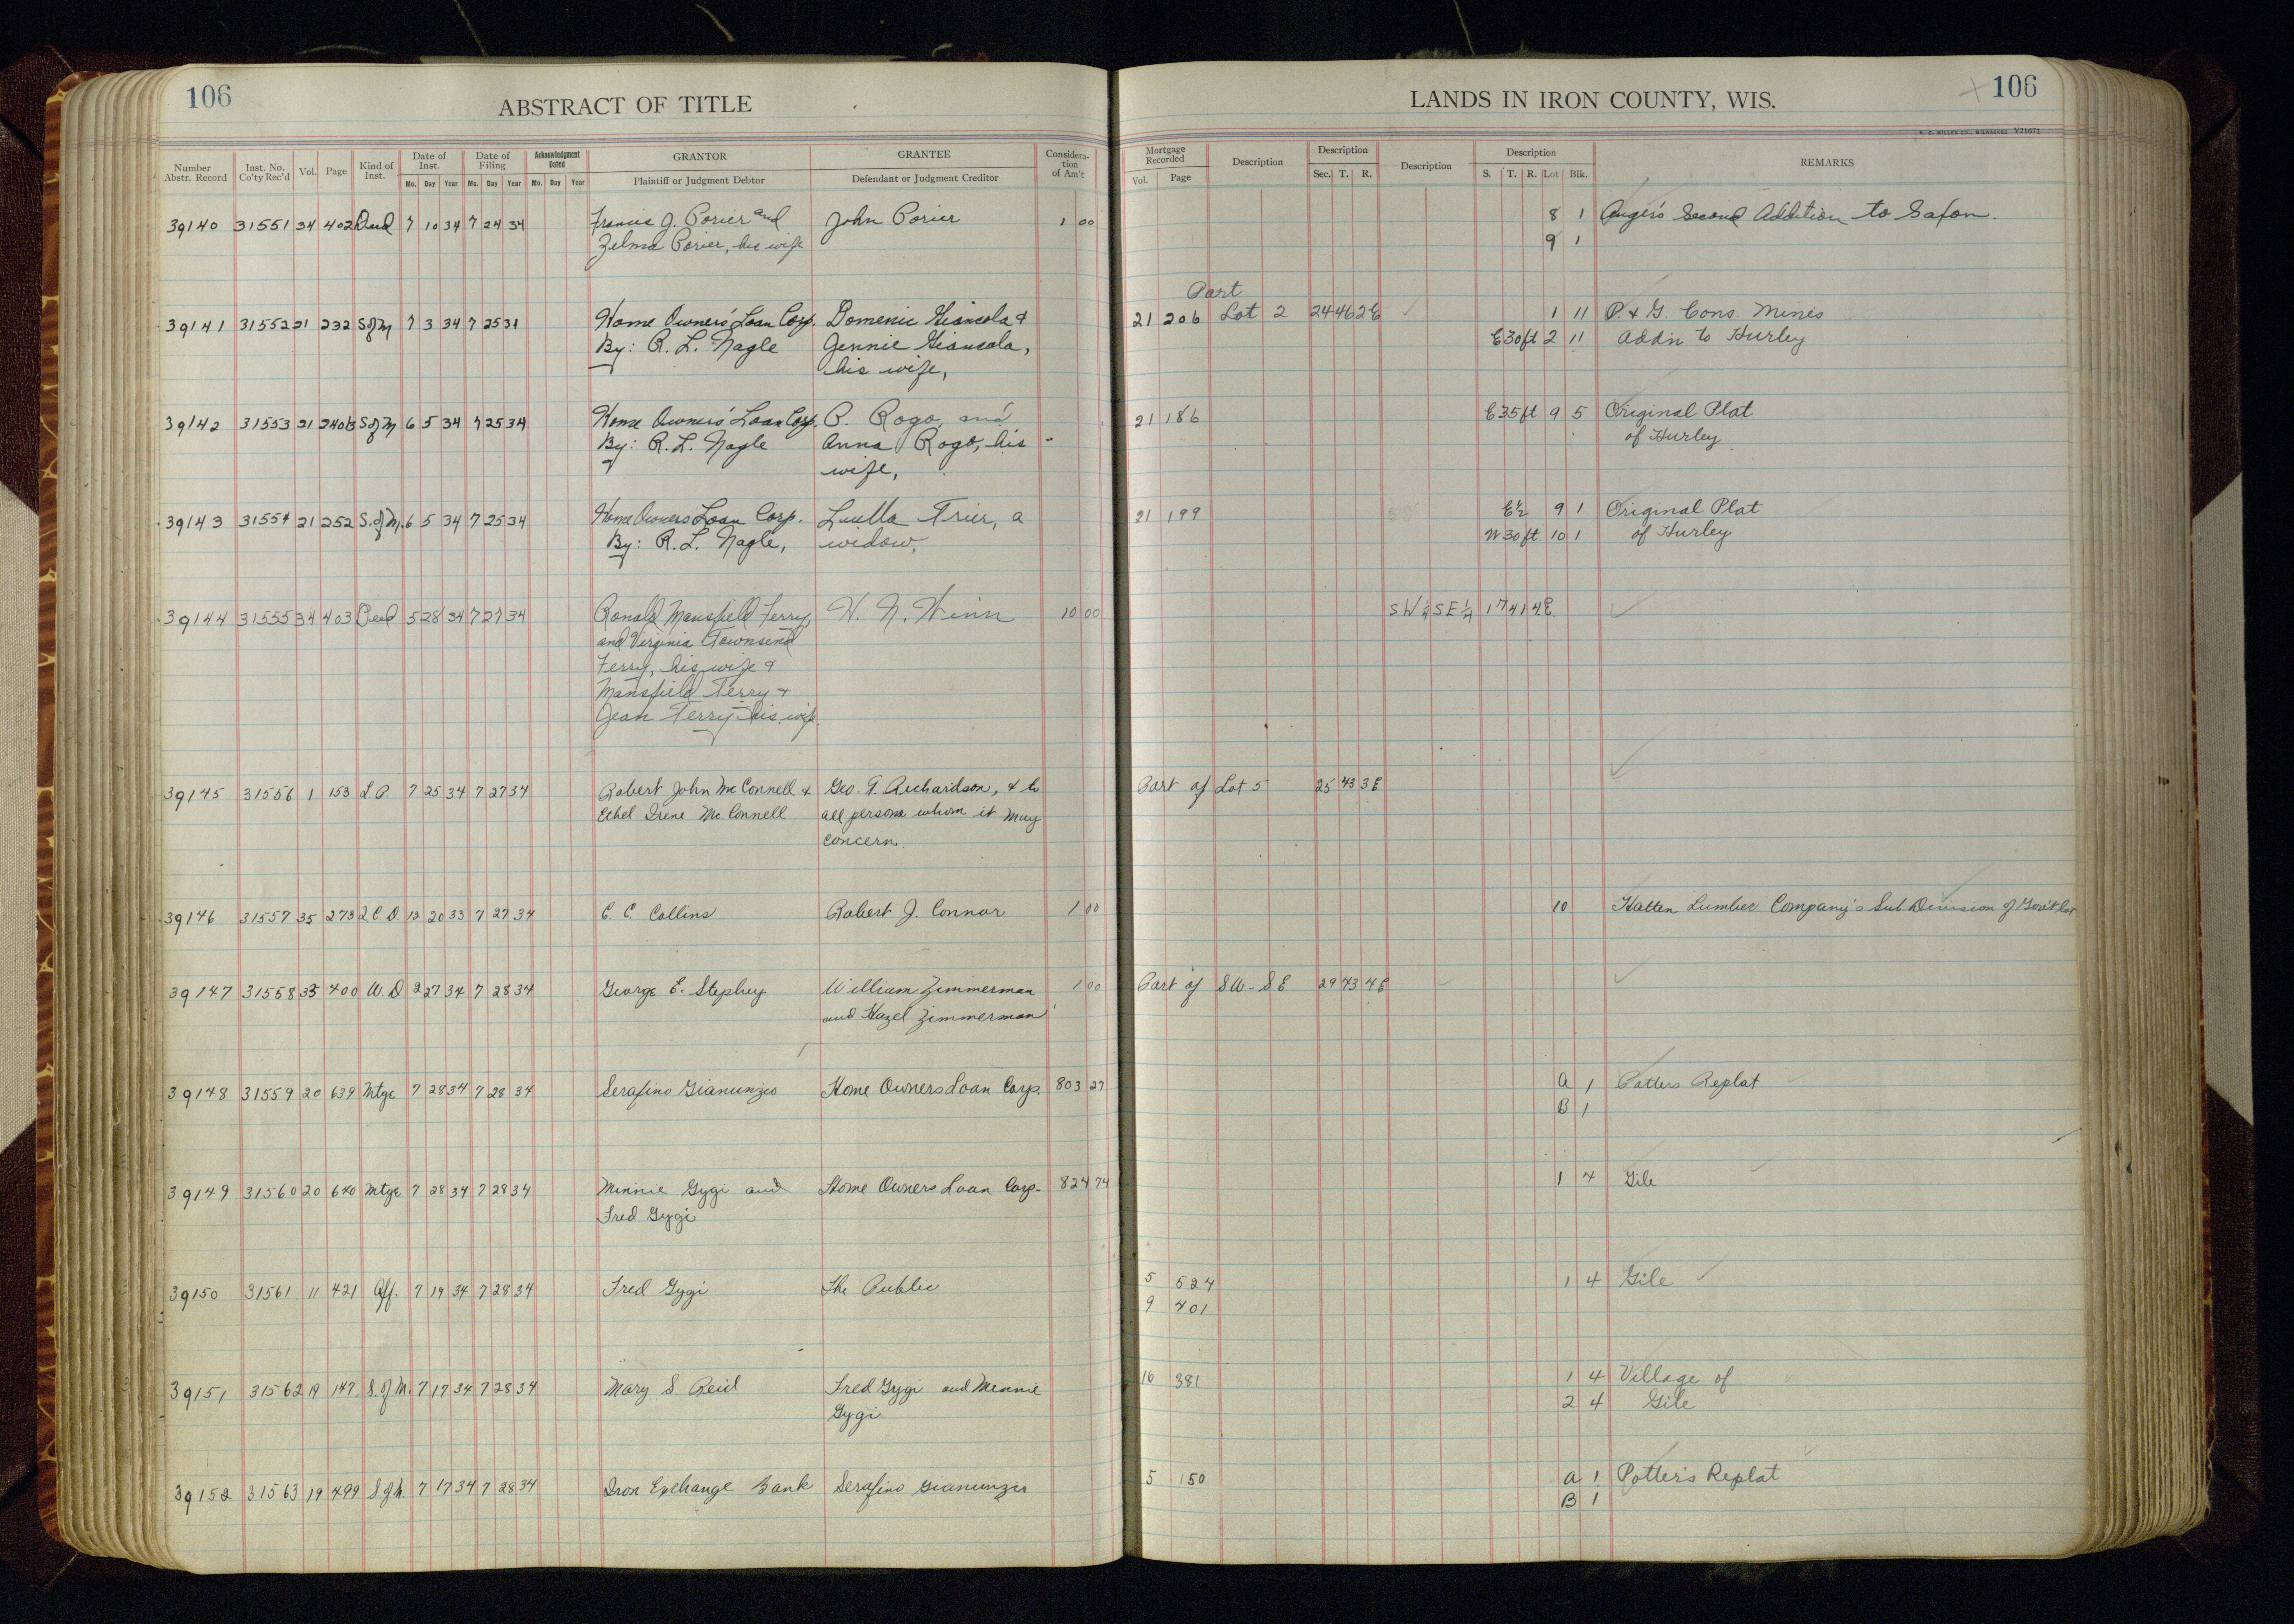 106
ABSTRACT OF TITLE
LANDS IN IRON COUNTY, WIS.
106
H. C. MILLER CO., MILWAUKEE V21671
Number Abstr. Record | Inst. No. Co'ty Rec'd | Vol. | Page | Kind of Inst. | Date of Inst. Mo. Day Year | Date of Filing Mo. Day Year | Acknowledgment Dated Mo. Day Year | GRANTOR Plaintiff or Judgment Debtor | GRANTEE Defendant or Judgment Creditor | Considera-tion of Am't | Mortgage Recorded Vol. Page | Description | Description Sec. T. R. | Description | Description S. T. R. Lot Blk. | REMARKS
39140 31551 34 402 Deed 7 10 34 7 24 34 Francis J. Porier and John Porier 1 00 8 1 Auger's Second Addition to Saxon.
Zelma Porier, his wife 9 1
Part
39141 31552 21 232 S of M 7 3 34 7 25 34 Home Owners' Loan Corp. Domenic Giancola & 21 206 Lot 2 24 46 2E 1 11 P. & G. Cons. Mines
By: R. L. Nagle Jennie Giancola, E30ft 2 11 Addn to Hurley
his wife,
39142 31553 21 240½ S of M 6 5 34 7 25 34 Home Owners' Loan Corp. P. Rogo, and 21 186 E35ft 9 5 Original Plat
By: R. L. Nagle Anna Rogo, his of Hurley
wife,
39143 31554 21 252 S. of M. 6 5 34 7 25 34 Home Owners Loan Corp. Luella Trier, a 21 199 E½ 9 1 Original Plat
By: R. L. Nagle, widow, W30ft 10 1 of Hurley
39144 31555 34 403 Deed 5 28 34 7 27 34 Ronald Mansfield Ferry, H. N. Winn 10 00 SW¼ SE¼ 17 41 4E
and Virginia Townsend
Ferry, his wife &
Mansfield Ferry &
Jean Ferry his wife
39145 31556 1 153 L.P. 7 25 34 7 27 34 Robert John McConnell & Geo. T. Richardson, & to Part of Lot 5 25 43 3E
Ethel Irene McConnell all persons whom it may
concern
39146 31557 35 273 Q.C.D. 12 20 33 7 27 34 C. C. Collins Robert J. Connor 1 00 10 Hatten Lumber Company's Sub Division of Gov't Lot
39147 31558 35 400 W.D 2 27 34 7 28 34 George E. Stephey William Zimmerman 1 00 Part of SW-SE 29 43 4E
and Hazel Zimmerman
39148 31559 20 639 Mtge 7 28 34 7 28 34 Serafino Gianunzio Home Owners Loan Corp. 803 27 A 1 Potters Replat
B 1
39149 31560 20 640 Mtge 7 28 34 7 28 34 Minnie Gygi and Home Owners Loan Corp. 824 74 1 4 Gile
Fred Gygi
39150 31561 11 421 Aff. 7 19 34 7 28 34 Fred Gygi The Public 5 524 1 4 Gile
9 401
39151 31562 19 147 S. of M. 7 17 34 7 28 34 Mary S Reid Fred Gygi and Minnie 16 381 1 4 Village of
Gygi 2 4 Gile
39152 31563 19 499 S. of M. 7 17 34 7 28 34 Iron Exchange Bank Serafino Gianunzio 5 150 A 1 Potter's Replat
B 1